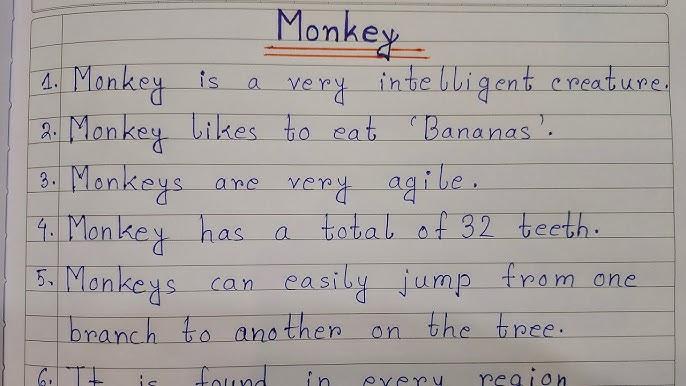 Monkey
1. Monkey is a very intelligent creature.
2. Monkey likes to eat 'Bananas'.
3. Monkeys are very agile.
4. Monkey has a total of 32 teeth.
5. Monkeys can easily jump from one
branch to another on the tree.
6. It is found in every region